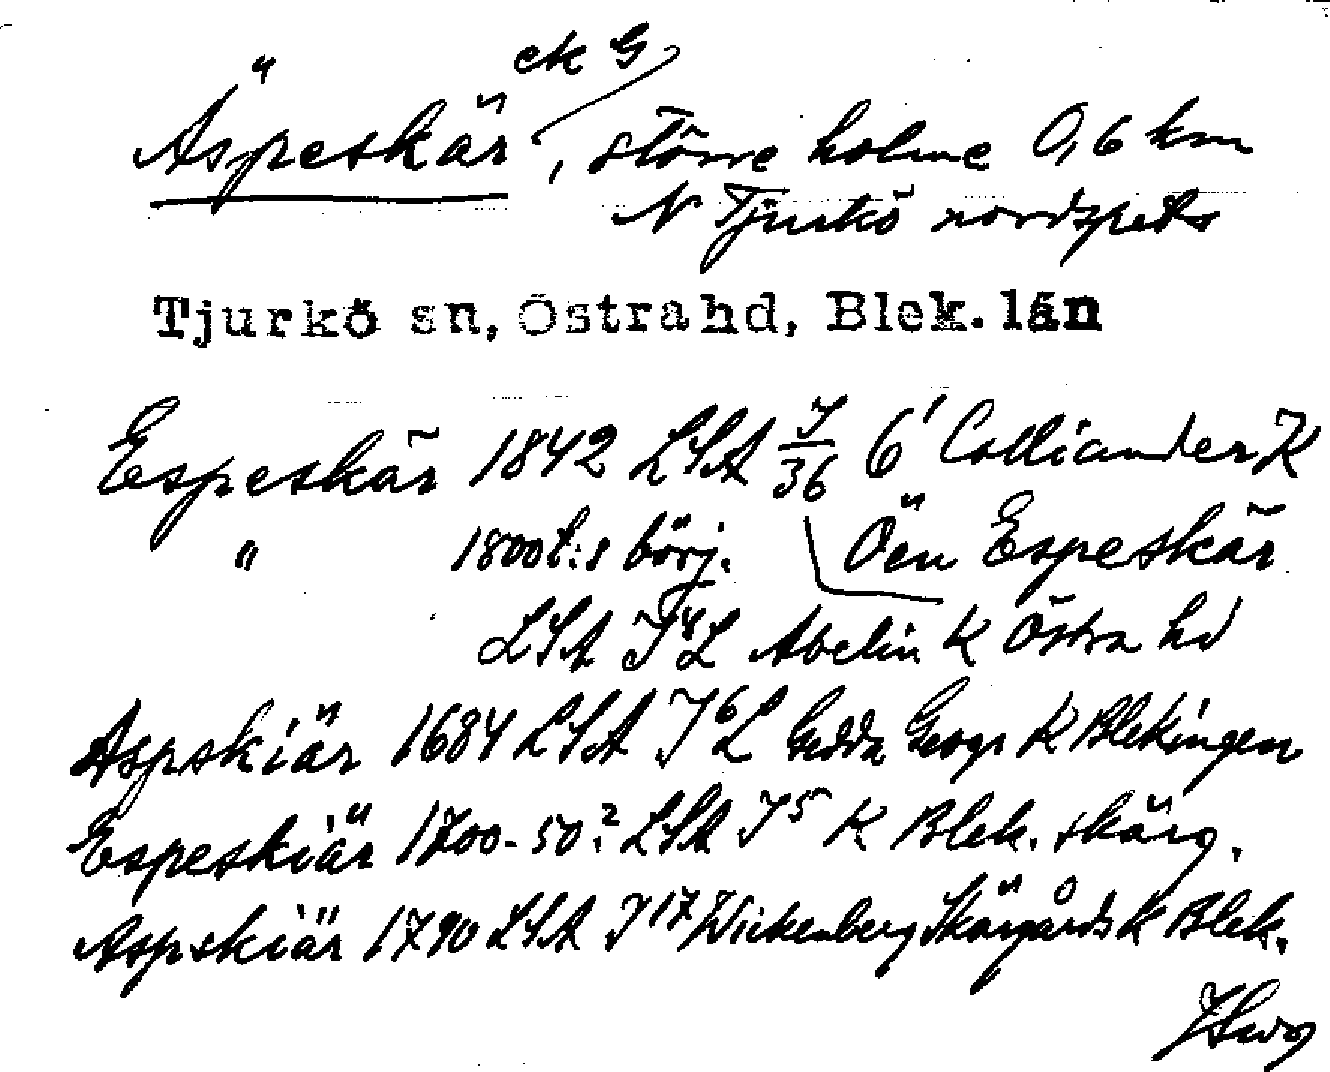 ek G
Äspeskär, större holme 0,6 km
N Tjurkö nordspets
Tjurkö sn, Östra hd, Blek. län
Espeskär 1842 LSA J/36 6' Colliander K
" 1800t:s börj. Ön Espeskär
LSA J4L Abelin K Östra hd
Aspskiär 1684 LSA J6L Gedda Geogr K Blekingen
Espeskiär 1700-50? LSA J5 K Blek. skärg.
Aspskiär 1790 LSA J17 Wickenberg Skärgårds K Blek.